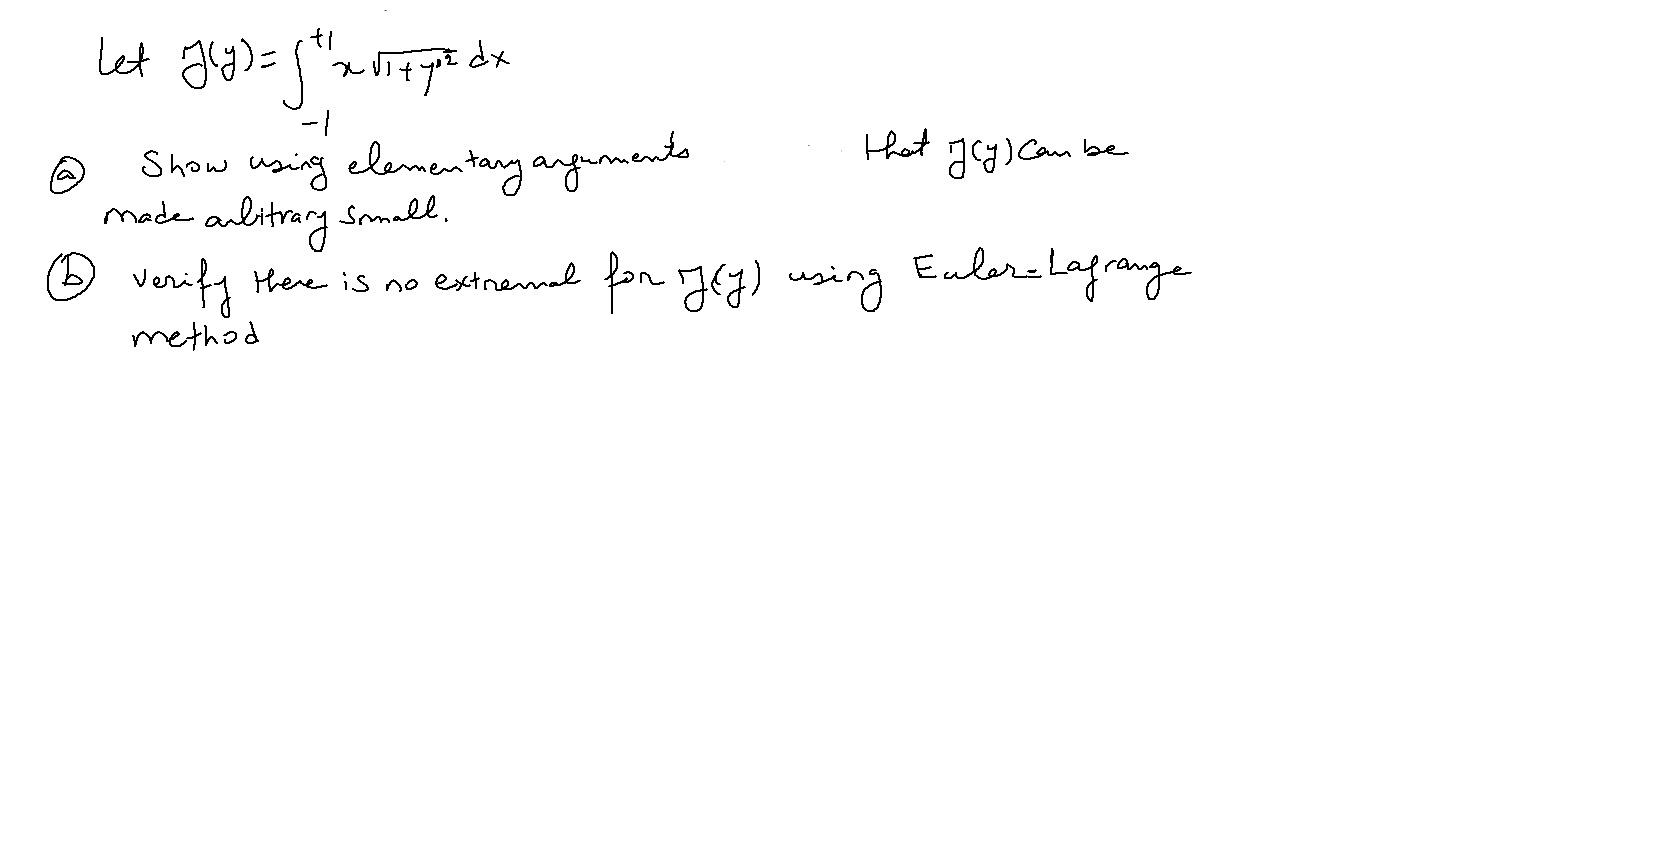 Let J(y) = ∫_{-1}^{+1} x √(1+y'²) dx
(a) Show using elementary arguments that J(y) can be
made arbitrary small.
(b) Verify there is no extremal for J(y) using Euler-Lagrange
method